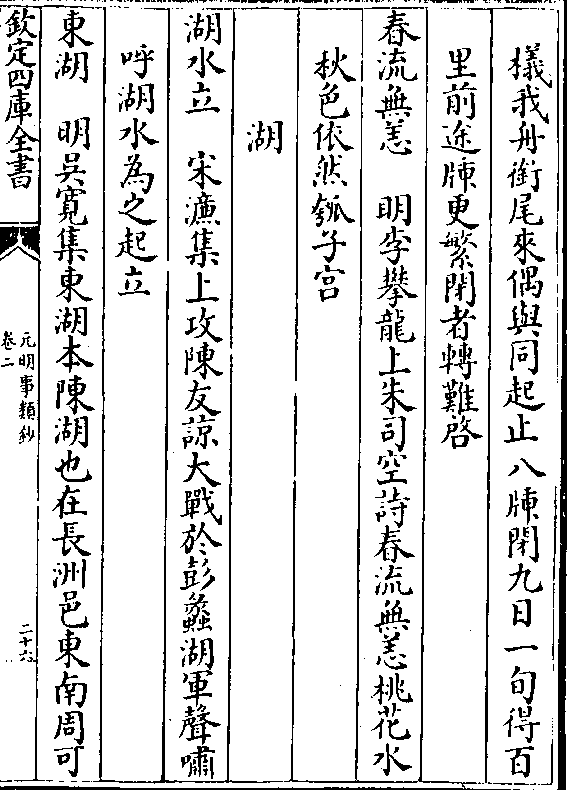 檥我舟銜尾來偶與同起止八牐閉九日一旬得百
里前途牐更繁閉者轉難啓
春流無恙　明李攀龍上朱司空詩春流無恙桃花水
秋色依然瓠子宫
湖
湖水立　宋濂集上攻陳友諒大戰於彭蠡湖軍聲嘯
呼湖水為之起立
東湖　明吳寛集東湖本陳湖也在長洲邑東南周可
欽定四庫全書
元明事類鈔
卷二
二十六